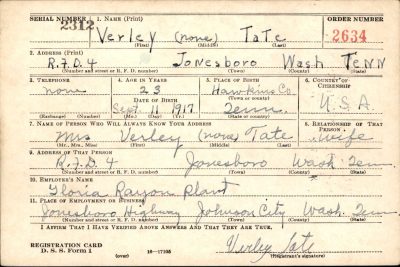 SERIAL NUMBER 1. NAME (Print) ORDER NUMBER
2312 Verley (none) Tate 2634
(First) (Middle) (Last)
2. ADDRESS (Print)
R.F.D. 4 Jonesboro Wash TENN
(Number and street or R. F. D. number) (Town) (County) (State)
3. TELEPHONE 4. AGE IN YEARS 5. PLACE OF BIRTH 6. COUNTRY OF CITIZENSHIP
none 23 Hawkins Co.
DATE OF BIRTH (Town or county)
Sept. 11 1917 Tenn. U.S.A.
(Exchange) (Number) (Mo.) (Day) (Yr.) (State or country)
7. NAME OF PERSON WHO WILL ALWAYS KNOW YOUR ADDRESS 8. RELATIONSHIP OF THAT PERSON
Mrs Verley (none) Tate wife
(Mr., Mrs., Miss) (First) (Middle) (Last)
9. ADDRESS OF THAT PERSON
R.F.D. 4 Jonesboro Wash. Tenn.
(Number and street or R. F. D. number) (Town) (County) (State)
10. EMPLOYER'S NAME
Gloria Rayon Plant
11. PLACE OF EMPLOYMENT OR BUSINESS
Jonesboro Highway Johnson City Wash. Tenn.
(Number and street or R. F. D. number) (Town) (County) (State)
I AFFIRM THAT I HAVE VERIFIED ABOVE ANSWERS AND THAT THEY ARE TRUE.
REGISTRATION CARD Verley Tate
D. S. S. Form 1 (over) 16—17105 (Registrant's signature)